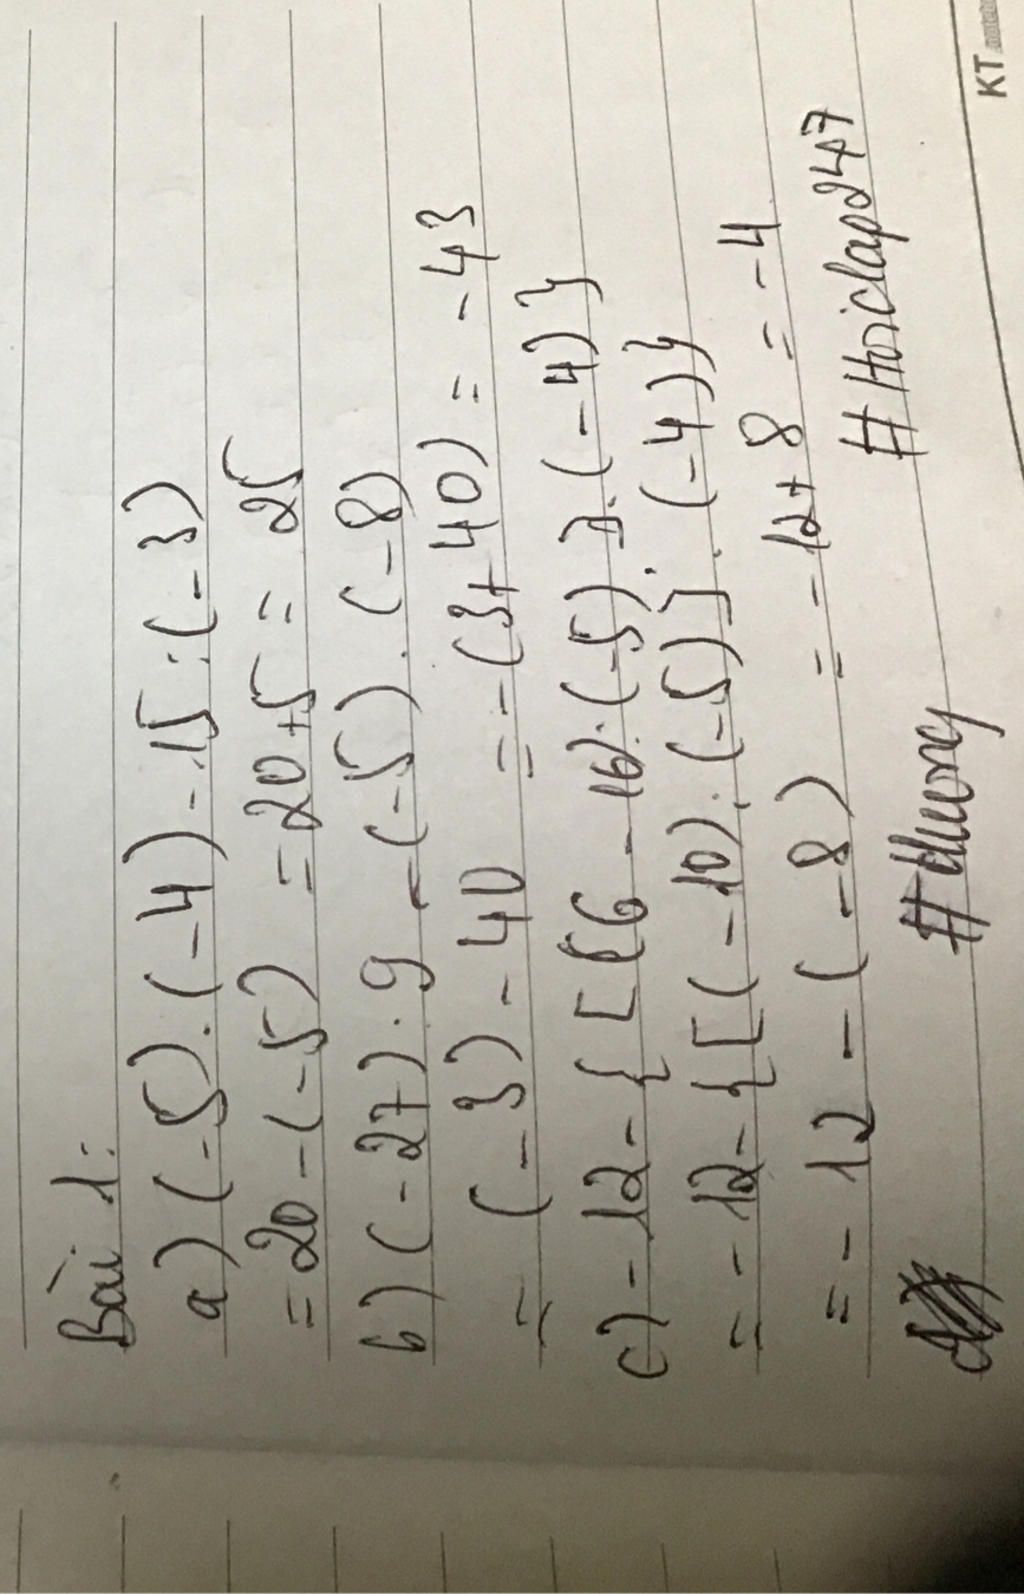 Bài 1:
a) (-5).(-4)-15:(-3)
= 20-(-5) = 20+5 = 25
b) (-27):9-(-5).(-8)
= (-3)-40 = -(3+40) = -43
c) -12-{[(6-16):(-5)].(-4)}
= -12-{[(-10):(-5)].(-4)}
= -12-(-8) = -12+8 = -4
#thuong #Hoiclap247
KT